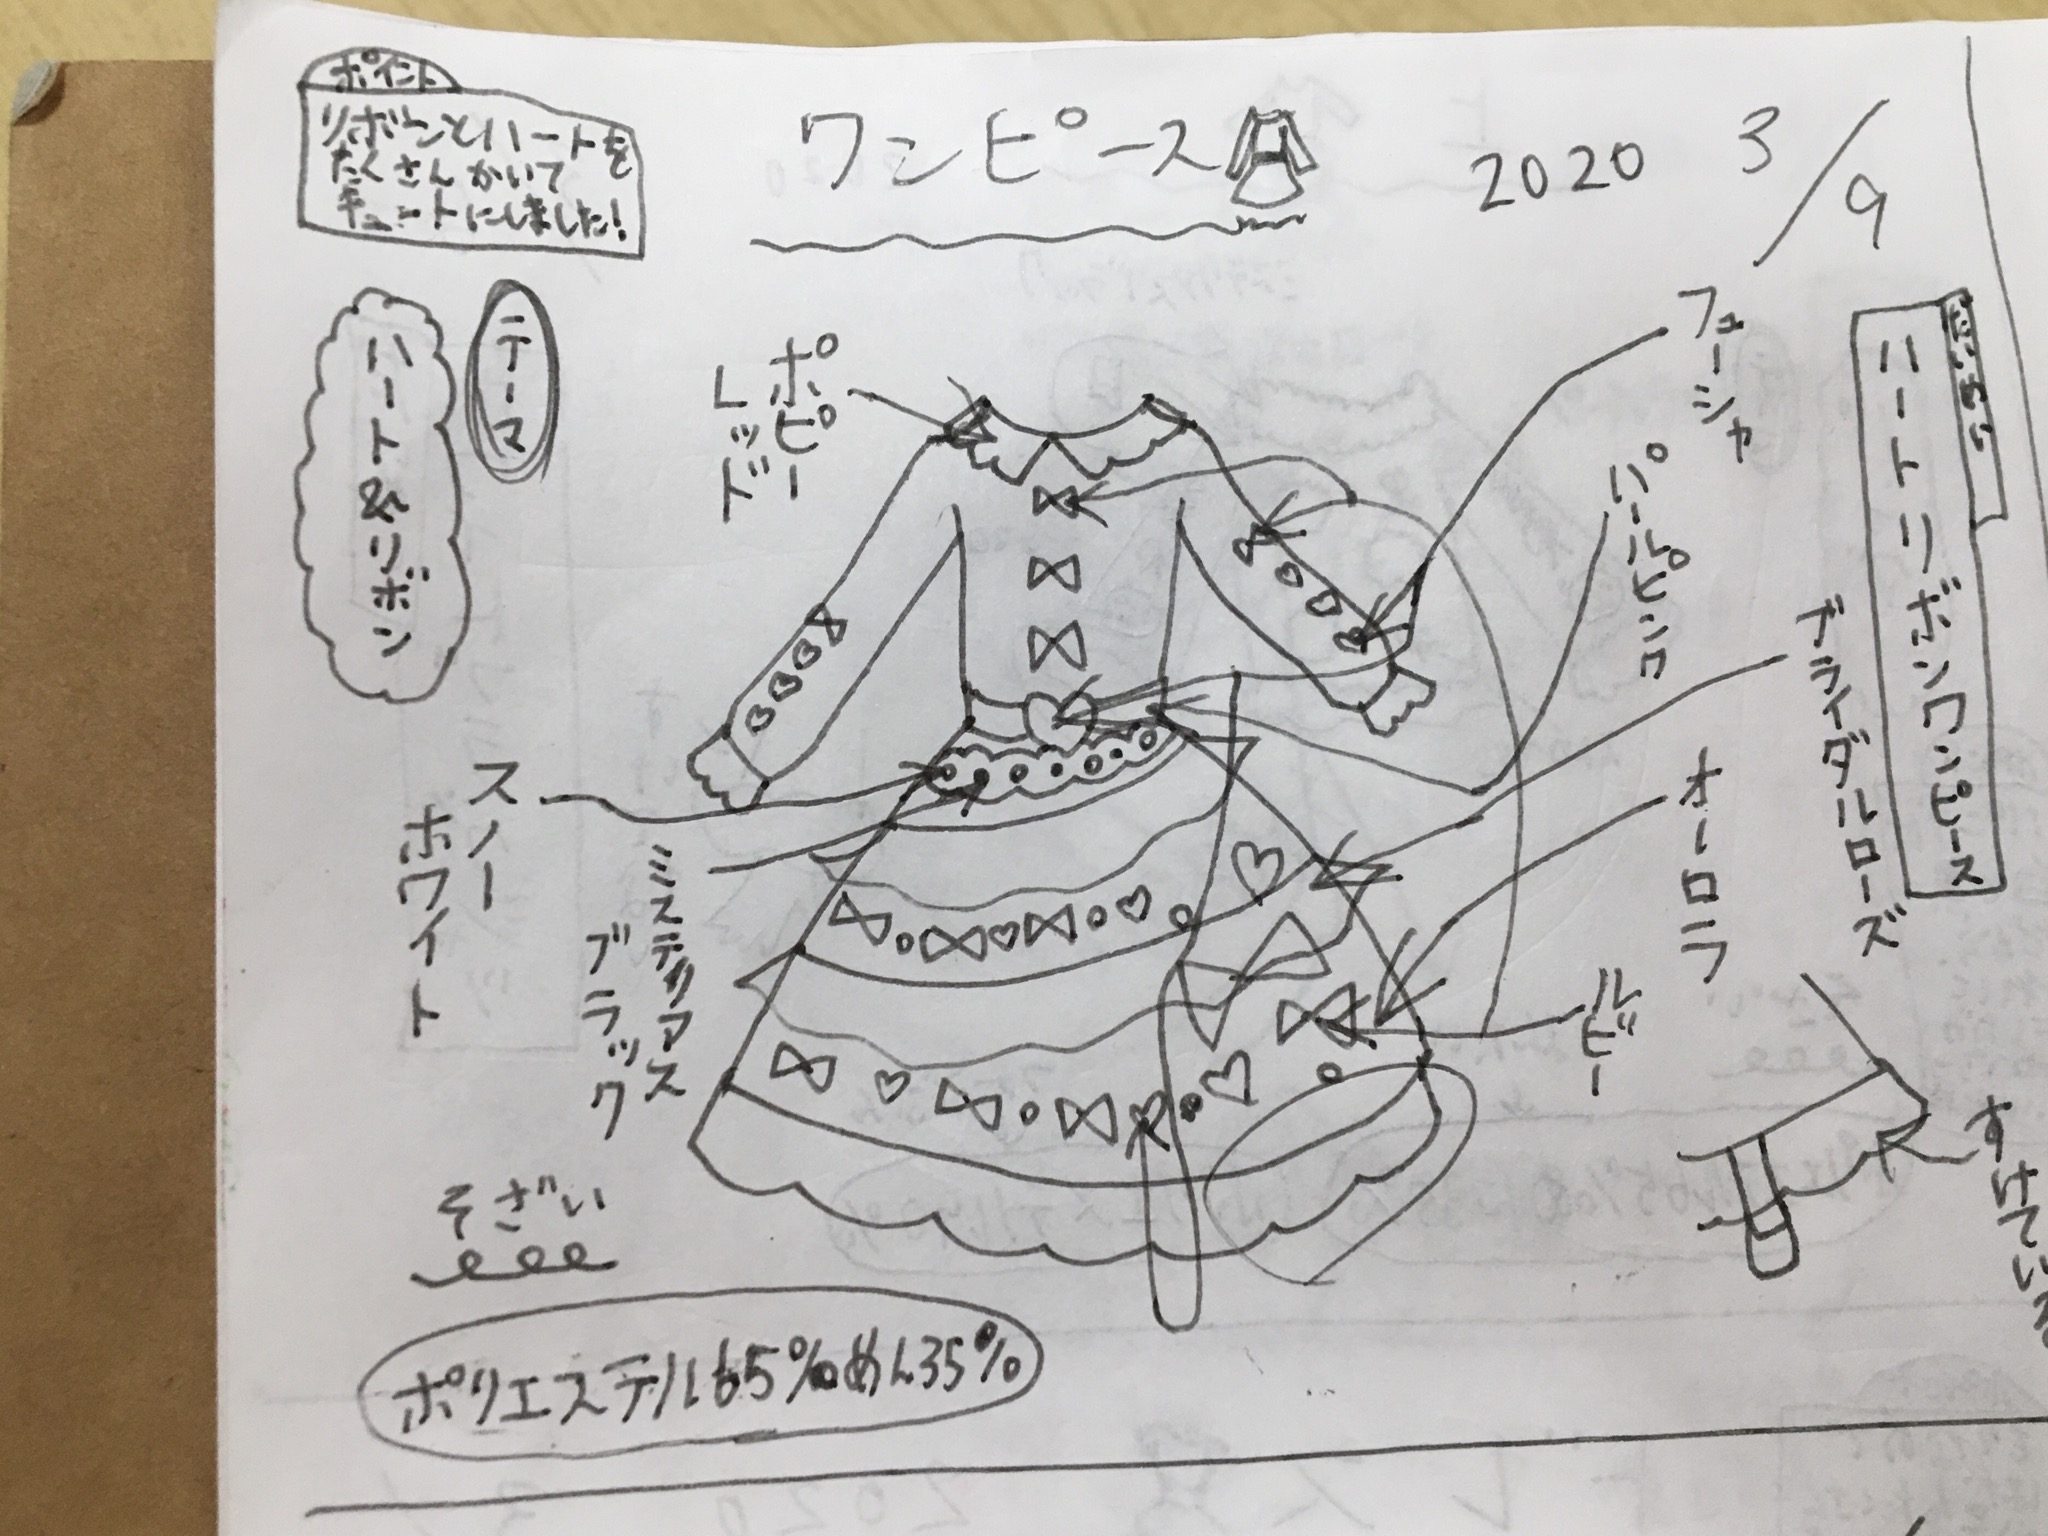 ポイント
リボンとハートを
たくさんかいて
キュートにしました!
ワンピース
2020 3/9
テーマ
ハート&リボン
ポピー
レッド
フューシャ
パールピンク
ブライダルローズ
ハートリボンワンピース
オーロラ
ルビー
スノー
ホワイト
ミステリアス
ブラック
すけている
そざい
ポリエステル65%めん35%